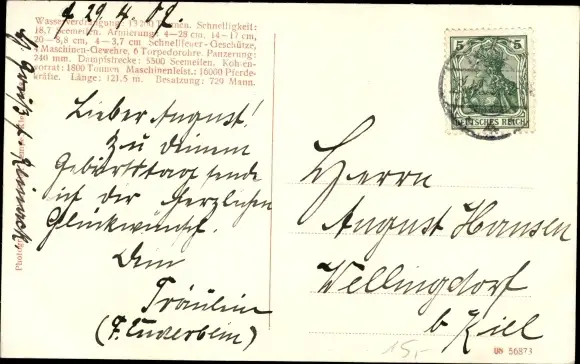 d. 29 4 08.
Wasserverdrängung: 13200 Tonnen. Schnelligkeit:
18,7 Seemeilen. Armierung: 4—28 cm, 14—17 cm,
20—8,8 cm, 4—3,7 cm Schnellfeuer-Geschütze,
Maschinen-Gewehre, 6 Torpedorohre. Panzerung:
240 mm. Dampfstrecke: 5500 Seemeilen. Kohlen-
vorrat: 1800 Tonnen. Maschinenleist.: 16000 Pferde-
kräfte. Länge: 121,5 m. Besatzung: 729 Mann.
Lieber August!
Zu Deinem
Geburtstage sende
ich der herzlichen
Glückwunsch.
Dein
Fräulein
Herrn
August Hansen
Wellingdorf
b Kiel
5 5
DEUTSCHES REICH
15,-
UN 56873